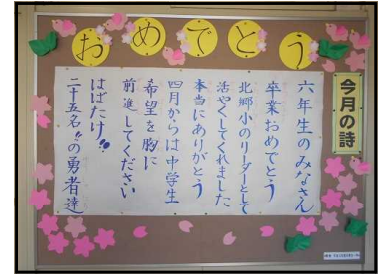 おめでとう
今月の詩
六年生のみなさん
卒業おめでとう
北郷小のリーダーとして
活やくしてくれました
本当にありがとう
四月からは中学生
希望を胸に
前進してください
はばたけ!!
二十五名の勇者達